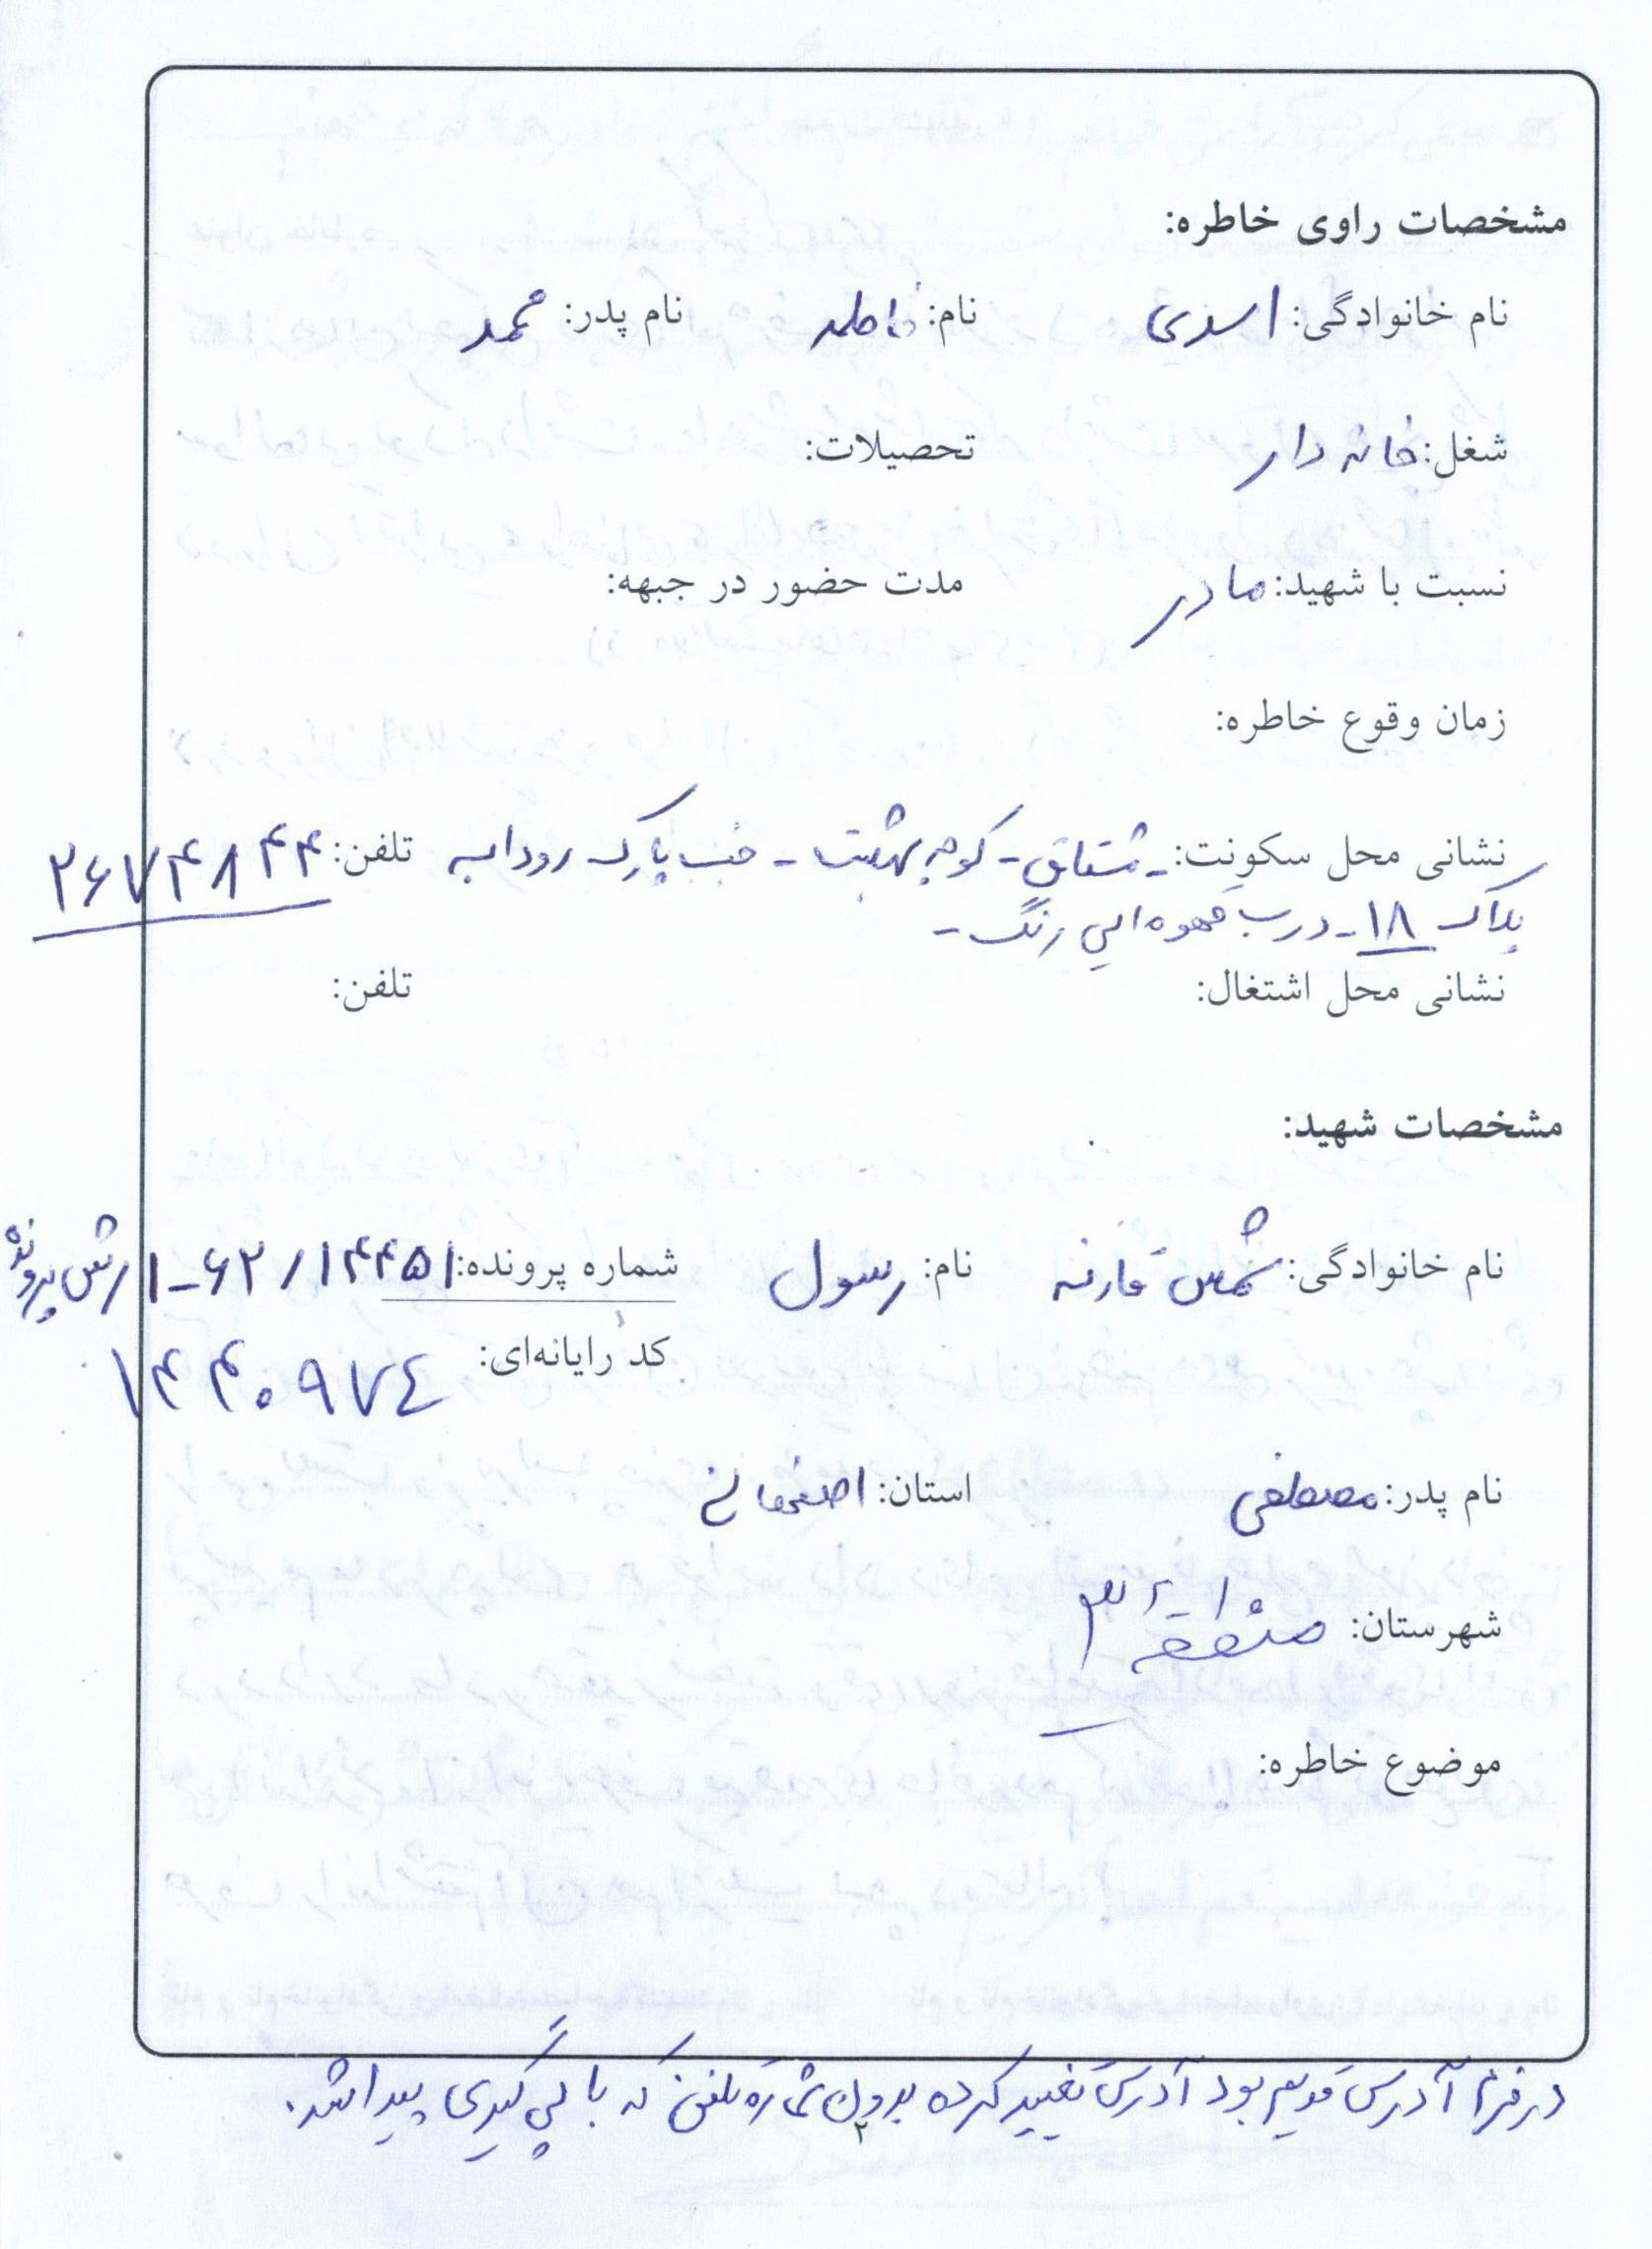 مشخصات راوی خاطره:
نام خانوادگی: اسدی نام: فاطمه نام پدر: محمد
شغل: خانه دار تحصیلات:
نسبت با شهید: مادر مدت حضور در جبهه:
زمان وقوع خاطره:
نشانی محل سکونت: - مشتاق - کوچه بهشت - جنب پارک رودابه تلفن: ۲۶۷۴۸۴۴
پلاک ۱۸ - درب قهوه ایی رنگ -
نشانی محل اشتغال: تلفن:
مشخصات شهید:
نام خانوادگی: شمس نام: رسول شماره پرونده: ۱-۶۲/۱۴۴۵۱ پرونده
کد رایانه‌ای: ۱۴۴۰۹۷٤
نام پدر: مصطفی استان: اصفهان
شهرستان: منطقه ۳
موضوع خاطره:
در فرم آدرس قدیم بود آدرس تغییر کرده بدون شماره تلفن که با پی گیری پیدا شد.
۲